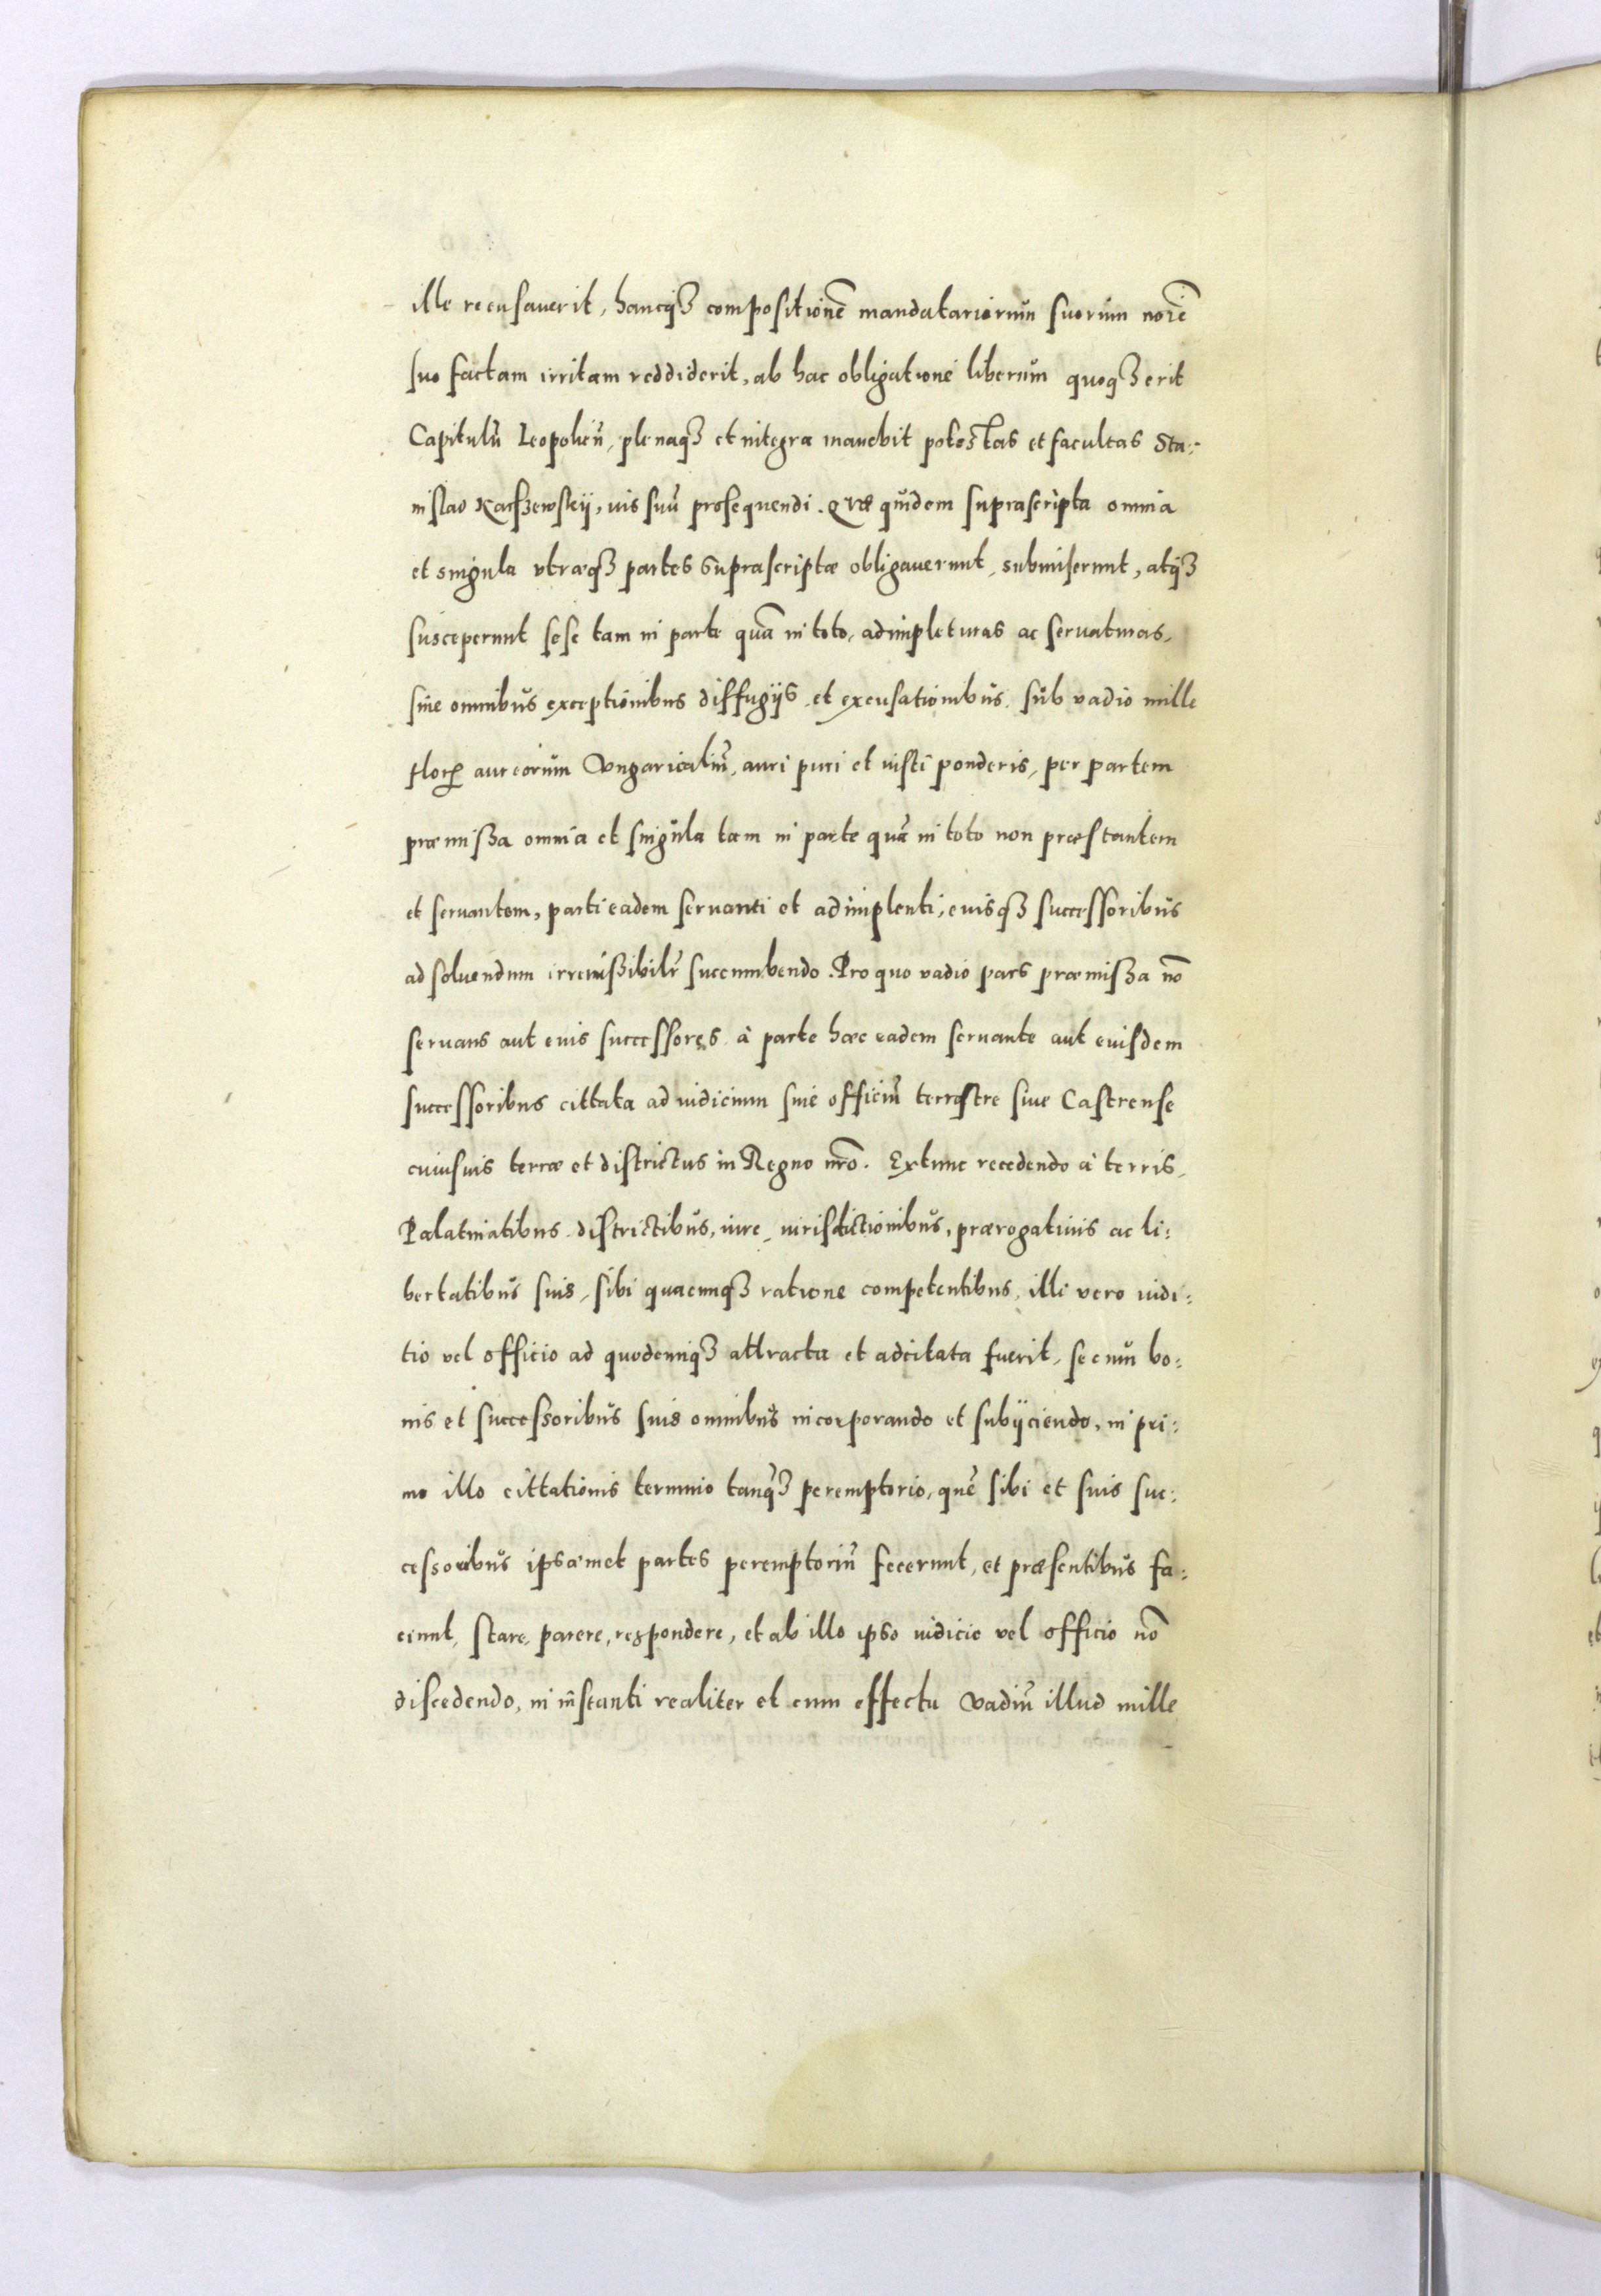 ille recusauerit, hancq́3 compositionẽ mandatariorum suorum noiẽ
suo factam irritam reddiderit, ab hac obligatione liberum quoq3 erit
Capitulũ Leopolieñ, plenaq3 et integra manebit potestas et facultas Sta:
nislao Karszewskij, ius suũ prosequendi. Quæ quidem suprascripta omnia
et singula vtræq3 partes suprascriptæ obligauerunt, submiserunt, atq3
susceperunt sese tam in parte quã in toto, adimpleturas ac seruaturas,
sine omnibus exceptionibus diffugijs et excusationibus sub vadio mille
floř aureorum Vngaricaliũ, auri puri et iusti ponderis, per partem
præmissa omnia et singula tam in parte quã in toto non præstantem
et seruantem, parti eadem seruanti et adimplenti, euisq3 successoribus
ad soluendum irremissibilr̃ succumbendo. Pro quo vadio pars præmissa nõ
seruans aut euis successores à parte hæc eadem seruante aut euisdem
successoribus cittata ad iudicium siue officiũ terrestre siue Castrense
cuiusuis terræ et districtus in Regno nrõ. Extunc recedendo à terris,
Palatinatibus districtibus, iure, iurisdictionibus, prærogatiuis ac li:
bertatibus suis, sibi quacunq3 ratione competentibus, illi vero iudi:
tio vel officio ad quodcunq3 attracta et adcitata fuerit, se cum bo:
nis et successoribus suis omnibus incorporando et subijciendo, in pri:
mo illo cittationis termino tanq̃3 peremptorio, quẽ sibi et suis suc:
cessoribus ipsæmet partes peremptoriũ fecerunt, et præsentibus fa:
ciunt, stare, parere, respondere, et ab illo ipso iudicio vel officio nõ
discedendo, in instanti realiter et cum effectu vadiũ illud mille